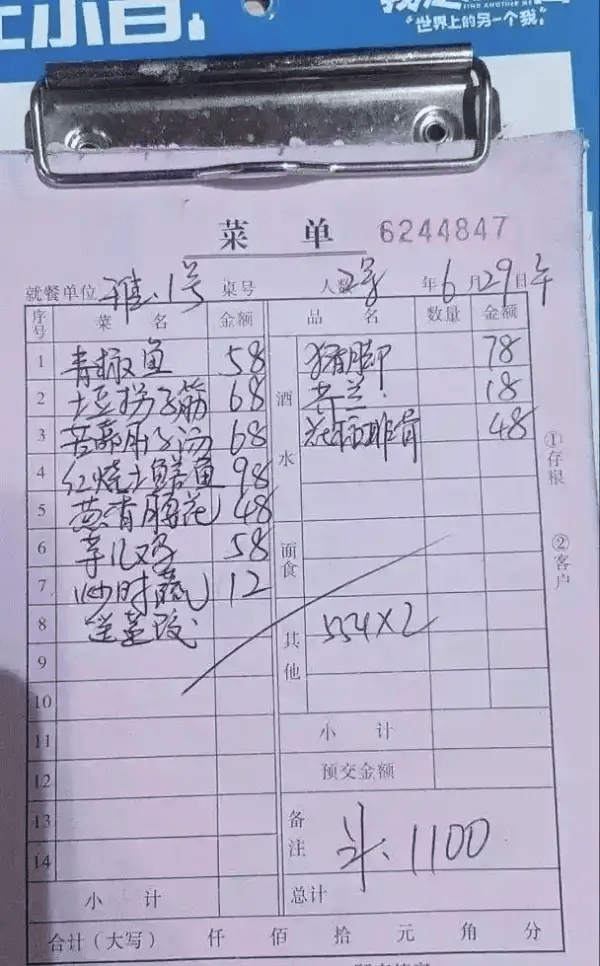 “世界上的另一个我”
菜 单 6244847
就餐单位 雅.1号 桌号 人数 年6月29日午
序号 菜 名 金额 品 名 数量 金额
1 青椒鱼 58 酒水 猪脚 78
2 土豆拐子筋 68 芥兰 18
3 68 花椒排骨 48
4 红烧土鳝鱼 98
5 葱香腰花 48
6 58 面食
7 炒时蔬 12
8 其他 554×2
9
10
11 小 计
12 预交金额
13 备注 计、1100
14
小 计 总计
合计(大写) 仟 佰 拾 元 角 分
①存根
②客户